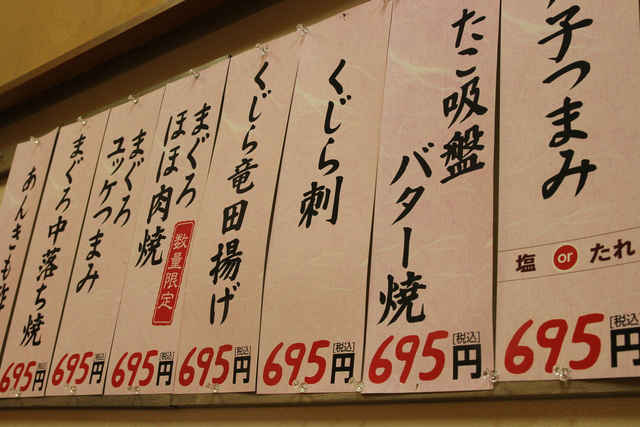 子つまみ
塩 or たれ
695円
[税込]
たこ吸盤
バター焼
695円
[税込]
くじら刺
695円
[税込]
くじら竜田揚げ
695円
[税込]
まぐろ
ほほ肉焼
数量限定
695円
[税込]
まぐろ
ユッケつまみ
695円
[税込]
まぐろ中落ち焼
695円
[税込]
あんきも
695円